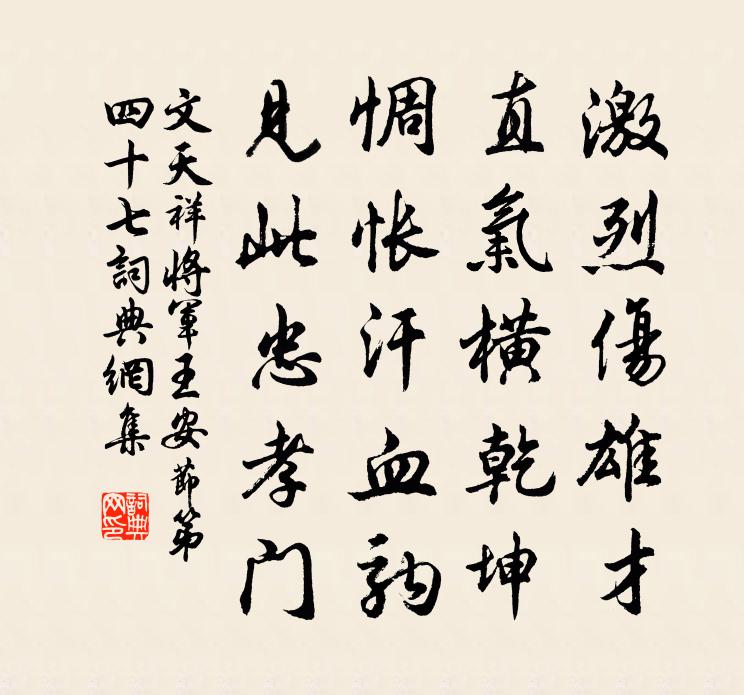 激烈傷雄才
直氣橫乾坤
惆悵汗血駒
見此忠孝門
文天祥將軍王安節第
四十七詞典網集
詞典
网印